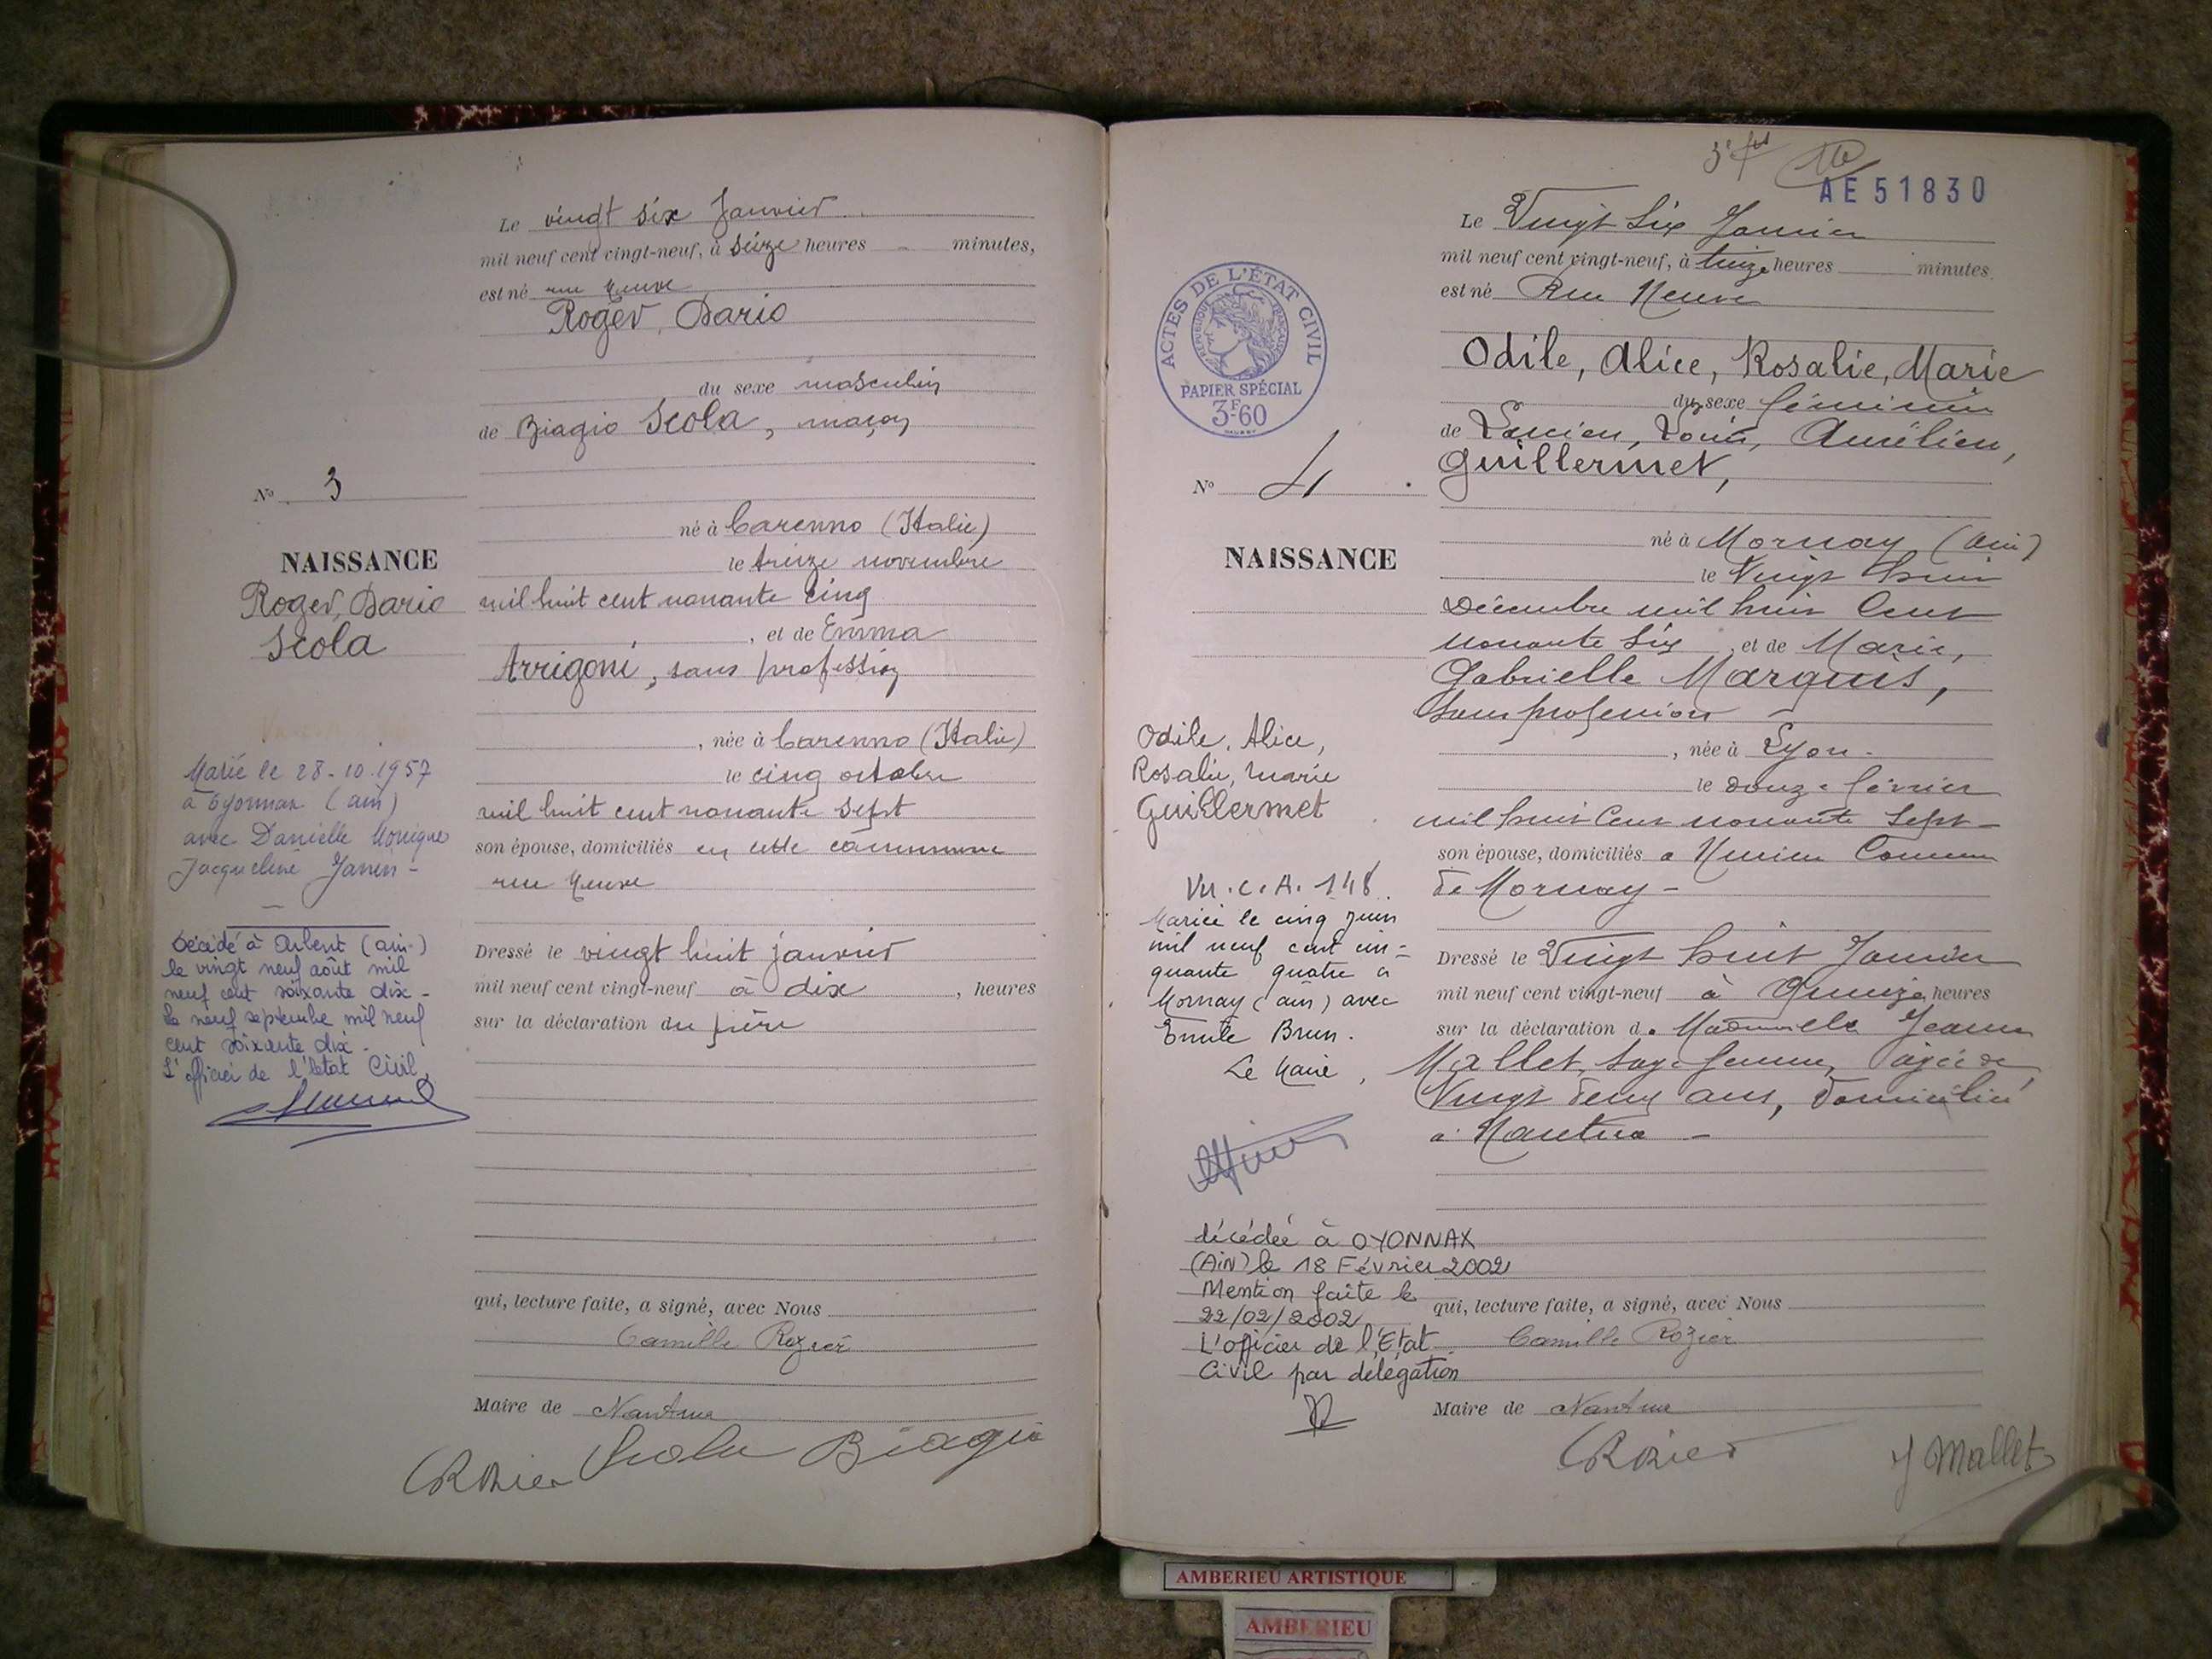 Le vingt six Janvier
mil neuf cent vingt-neuf, à seize heures - minutes,
est né rue Neuve
Roger, Dario
du sexe masculin
de Biagio Scola, maçon
né à Carenno (Italie)
le treize novembre
mil huit cent nonante cinq
, et de Emma
Arrigoni, sans profession
, née à Carenno (Italie)
le cinq octobre
mil huit cent nonante sept
son épouse, domiciliés en cette commune
rue Neuve
Dressé le vingt huit janvier
mil neuf cent vingt-neuf à dix , heures
sur la déclaration du père
qui, lecture faite, a signé, avec Nous
Camille Rozier
Maire de Nantua
CRozier Scola Biagio
No 3
NAISSANCE
Roger, Dario
Scola
Marié le 28-10-1957
à Oyonnax (ain)
avec Danielle Monique
Jacqueline Janin -
Décédé à Arbent (ain-)
le vingt neuf août mil
neuf cent soixante dix -
le neuf septembre mil neuf
cent soixante dix -
L'officier de l'état Civil,
AE51830
Le Vingt Six Janvier
mil neuf cent vingt-neuf, à treize heures minutes
est né Rue Neuve
Odile, Alice, Rosalie, Marie
du sexe féminin
de Lucien, Louis, Aurélien,
Guillermet,
né à Mornay (Ain)
le Vingt huit
Décembre mil huit Cent
nonante Six , et de Marie,
Gabrielle Marquis,
Sans profession -
, née à Lyon -
le douze février
mil huit Cent nonante Sept -
son épouse, domiciliés à Commune
de Mornay -
Dressé le Vingt huit Janvier
mil neuf cent vingt-neuf à Quinze heures
sur la déclaration de Mademoiselle Jeanne
Mallet, Sage femme, âgée de
Vingt deux ans, domiciliée
à Nantua -
qui, lecture faite, a signé, avec Nous
Camille Rozier
Maire de Nantua
CRozier J Mallet
ACTES DE L'ÉTAT CIVIL
RÉPUBLIQUE FRANÇAISE
PAPIER SPÉCIAL
3F60
No 4
NAISSANCE
Odile, Alice,
Rosalie, Marie
Guillermet
Vu.C.A. 148
Mariée le cinq juin
mil neuf cent cin-
quante quatre à
Mornay (ain) avec
Emile Brun.
Le Maire,
décédée à OYONNAX
(AiN) le 18 Février 2002
Mention faite le
22/02/2002
L'officier de l'Etat
Civil par délégation
AMBERIEU ARTISTIQUE
AMBERIEU